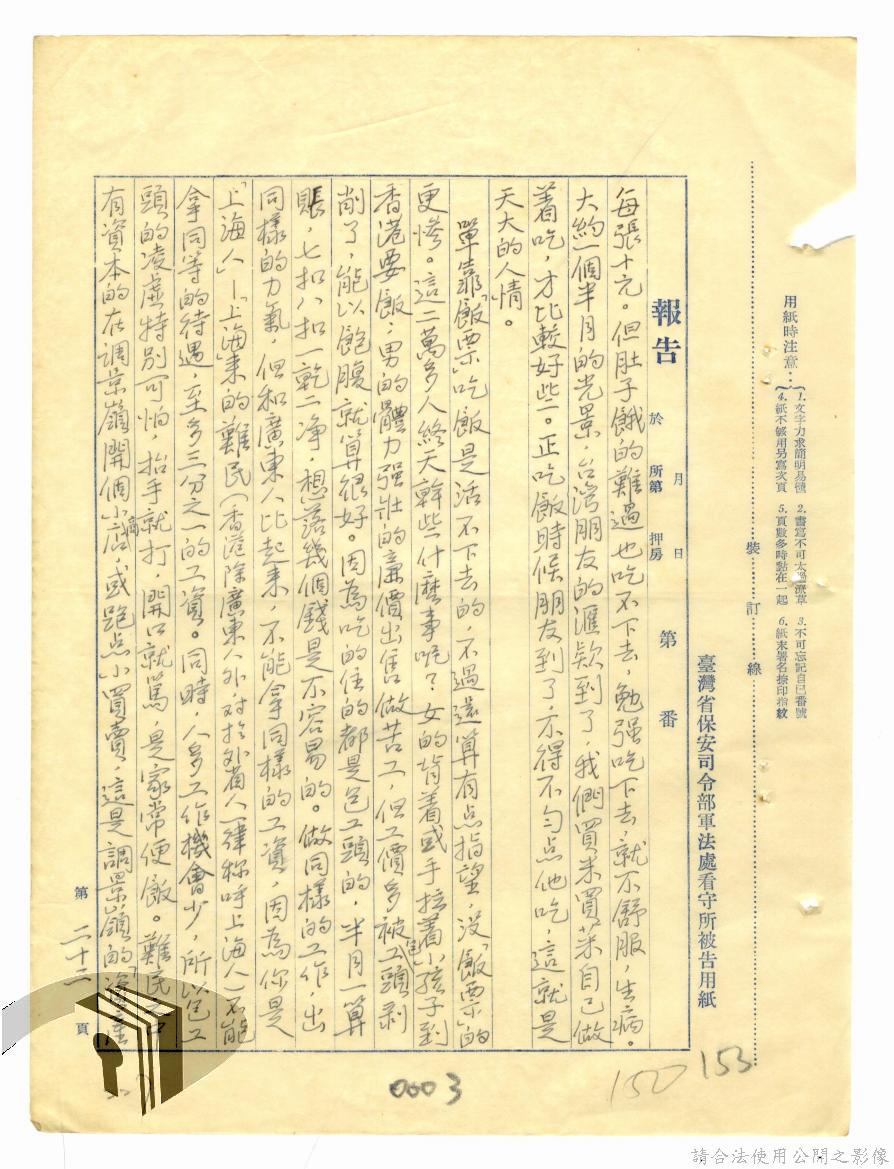 裝訂線
用紙時注意：
1.文字力求簡明易懂 2.書寫不可太過潦草 3.不可忘記自己番號
4.紙不够用另寫次頁 5.頁數多時黏在一起 6.紙末署名捺印指紋
臺灣省保安司令部軍法處看守所被告用紙
報告 於 月 日 所第 押房 第 番
每張十元。但肚子餓的難過也吃不下去，勉强吃下去，就不舒服，生病。
大約一個半月的光景，台灣朋友的滙欵到了，我們買米買菜自己做
着吃，才比較好些。正吃飯時候朋友到了，亦得不勻点他吃，這就是
天大的人情。
單靠「飯票」吃飯是活不下去的，不過還算有点指望，没「飯票」的
更慘。這二萬多人終天幹些什麽事呢？女的背着或手拉着小孩子到
香港要飯；男的體力强壯的廉價出售做苦工，但工價多被包工頭剥
削了，能以飽腹就算很好。因為吃的住的都是包工頭的，半月一算
賬，七扣八扣一乾二净，想落幾個錢是不容易的。做同樣的工作，出
同樣的力氣，但和廣東人比起來，不能拿同樣的工資，因為你是
「上海人」—「上海」來的難民（香港除廣東人外，對於外省人一律称呼上海人）不能
拿同等的待遇，至多三分之一的工資。同時，人多工作機會少，所以包工
頭的凌虐特別可怕，抬手就打，開口就駡，是家常便飯。難民之中
有資本的在調景嶺開個小商店，或跑点小買賣，這是調景嶺的「資產
第二十三頁
0003
150 153
請合法使用公開之影像